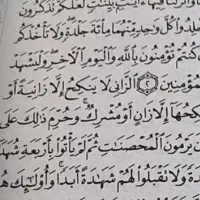 وَأَنزَلْنَا فِيهَآ ءَايَٰتٍۭ بَيِّنَٰتٍ لَّعَلَّكُمْ تَذَكَّرُونَ
جْلِدُوا۟ كُلَّ وَٰحِدٍ مِّنْهُمَا مِا۟ئَةَ جَلْدَةٍ وَلَا تَأْخُذْكُم
كُنتُمْ تُؤْمِنُونَ بِٱللَّهِ وَٱلْيَوْمِ ٱلْءَاخِرِ وَلْيَشْهَدْ
مُؤْمِنِينَ ٢ ٱلزَّانِى لَا يَنكِحُ إِلَّا زَانِيَةً أَوْ
كِحُهَآ إِلَّا زَانٍ أَوْ مُشْرِكٌ ۚ وَحُرِّمَ ذَٰلِكَ عَلَى
ينَ يَرْمُونَ ٱلْمُحْصَنَٰتِ ثُمَّ لَمْ يَأْتُوا۟ بِأَرْبَعَةِ شُهَدَ
دَةً وَلَا تَقْبَلُوا۟ لَهُمْ شَهَٰدَةً أَبَدًا ۚ وَأُو۟لَٰٓئِكَ هُ